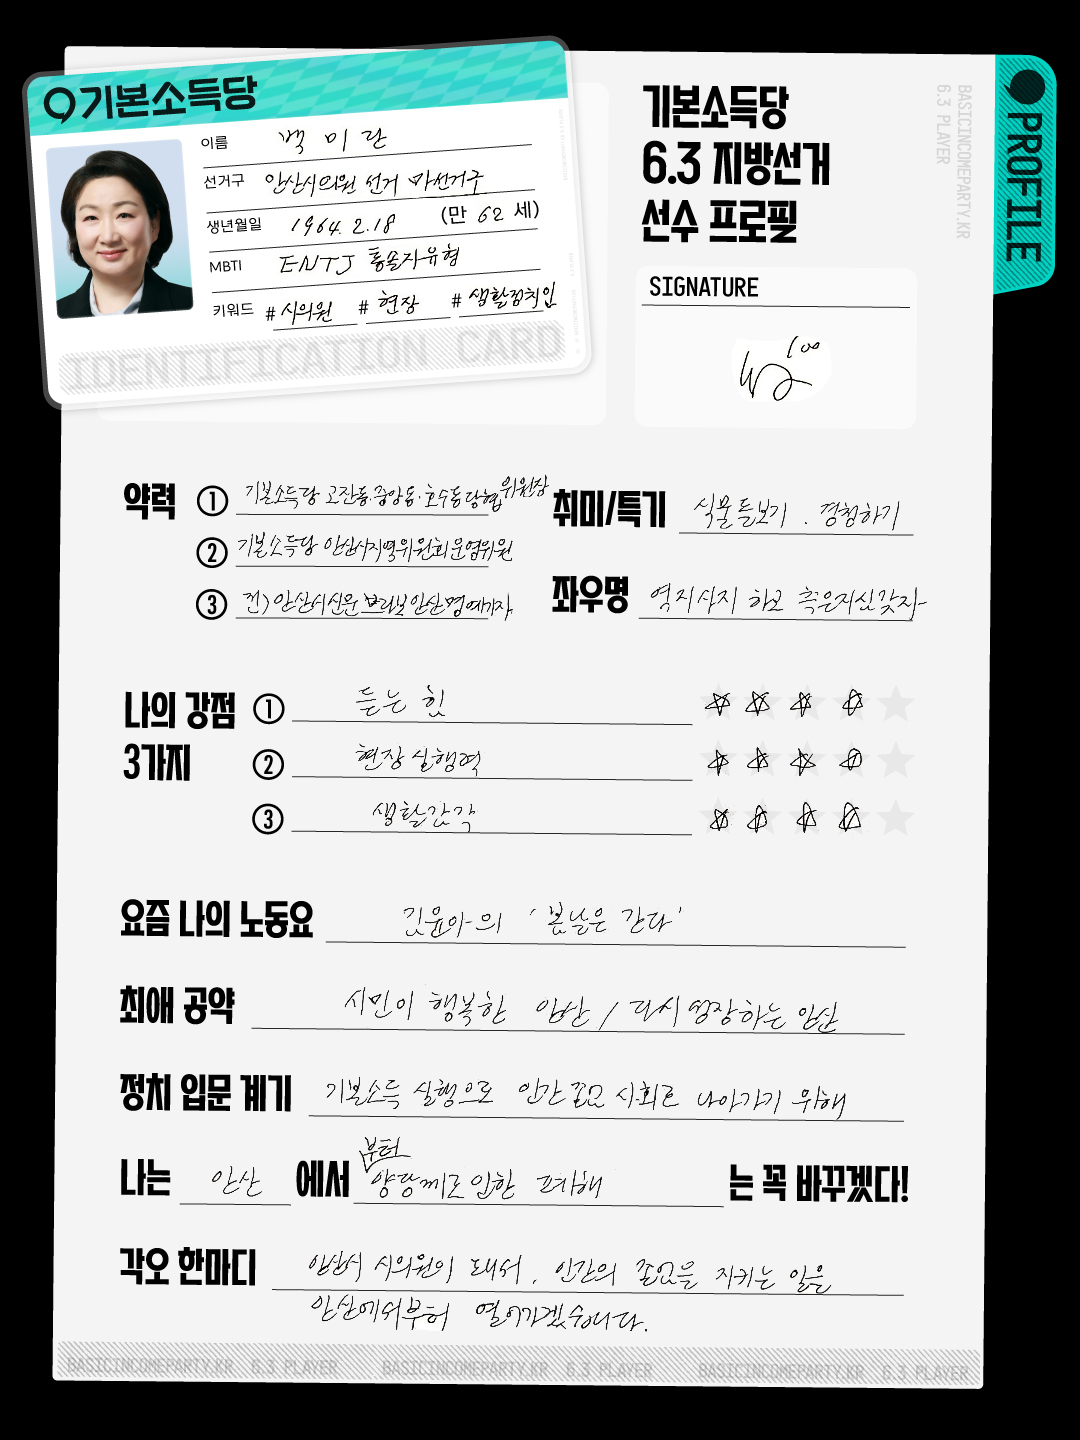 기본소득당
이름 백미란
선거구 안산시의원 선거 마선거구
생년월일 1964. 2. 18 (만 62 세)
MBTI ENTJ 통솔자유형
키워드 #시의원 #현장 #생활정치인
IDENTIFICATION CARD
기본소득당
6.3 지방선거
선수 프로필
BASICINCOMEPARTY.KR
6.3 PLAYER
PROFILE
SIGNATURE
약력 ① 기본소득당 고잔동·중앙동·호수동당협위원장
② 기본소득당 안산시지역위원회운영위원
③ 전) 안산시신문 안산명예기자
취미/특기 식물돌보기 . 경청하기
좌우명 역지사지 하고 측은지심갖자
나의 강점 3가지
① 듣는 힘
② 현장실행력
③ 생활감각
요즘 나의 노동요 김윤아의 '봄날은 간다'
최애 공약 시민이 행복한 안산 / 다시 성장하는 안산
정치 입문 계기 기본소득 실행으로 인간존엄 사회로 나아가기 위해
나는 안산 에서부터 양당제로인한 폐해 는 꼭 바꾸겠다!
각오 한마디 안산시 시의원이 돼서 , 인간의 존엄을 지키는 일을
안산에서부터 열어가겠습니다.
BASICINCOMEPARTY.KR 6.3 PLAYER BASICINCOMEPARTY.KR 6.3 PLAYER BASICINCOMEPARTY.KR 6.3 PLAYER